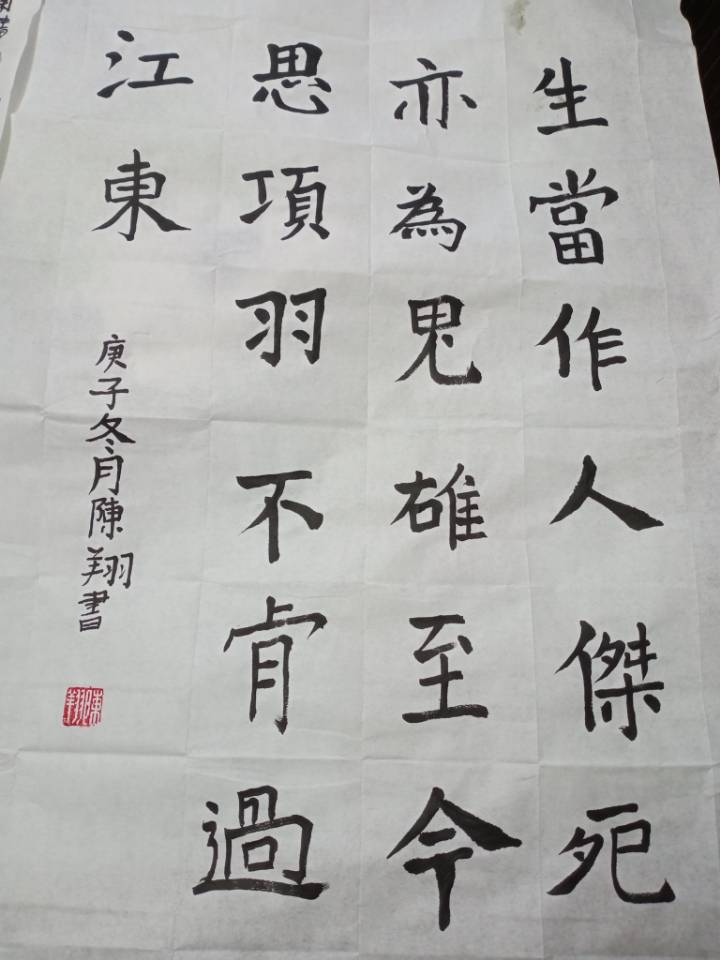 生當作人傑死
亦為鬼雄至今
思項羽不肯過
江東
庚子冬月陳翔書
陳翔